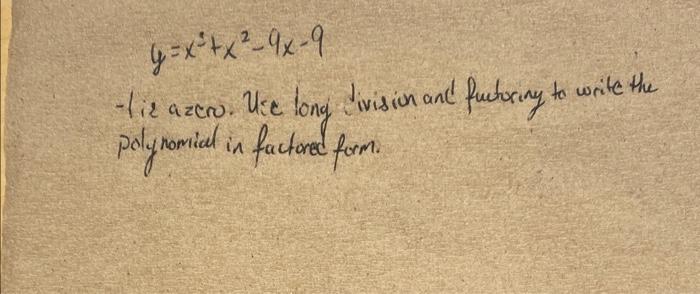 y=x³+x²-9x-9
-1 is a zero. Use long division and factoring to write the
polynomial in factored form.